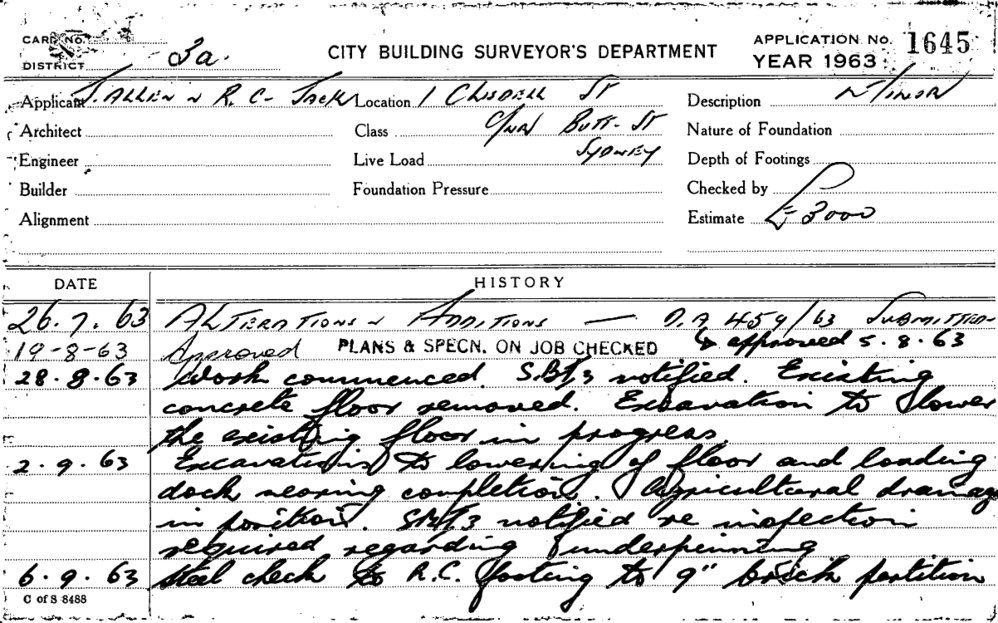 CARD No.
DISTRICT 3a.
CITY BUILDING SURVEYOR'S DEPARTMENT
APPLICATION No. 1645
YEAR 1963
Applicant J. ALLEN & R. C. JACK Location 1 CLISDELL ST Description MINOR
Architect Class C/NR BUTT - ST Nature of Foundation
Engineer Live Load SYDNEY Depth of Footings
Builder Foundation Pressure Checked by
Alignment Estimate £ 3000
DATE HISTORY
26.7.63 ALTERATIONS & ADDITIONS — D.A 459/63 SUBMITTED
19-8-63 Approved PLANS & SPECN. ON JOB CHECKED & approved 5.8.63
28.8.63 Work commenced. notified. Existing
concrete floor removed. Excavation to lower
the existing floor in progress
2.9.63 Excavations to lowering of floor and loading
dock nearing completion. Agricultural drainage
in position. notified re inspection
required regarding underpinning
6.9.63 Steel check to R.C. footing to 9" brick partition
C of S 8488